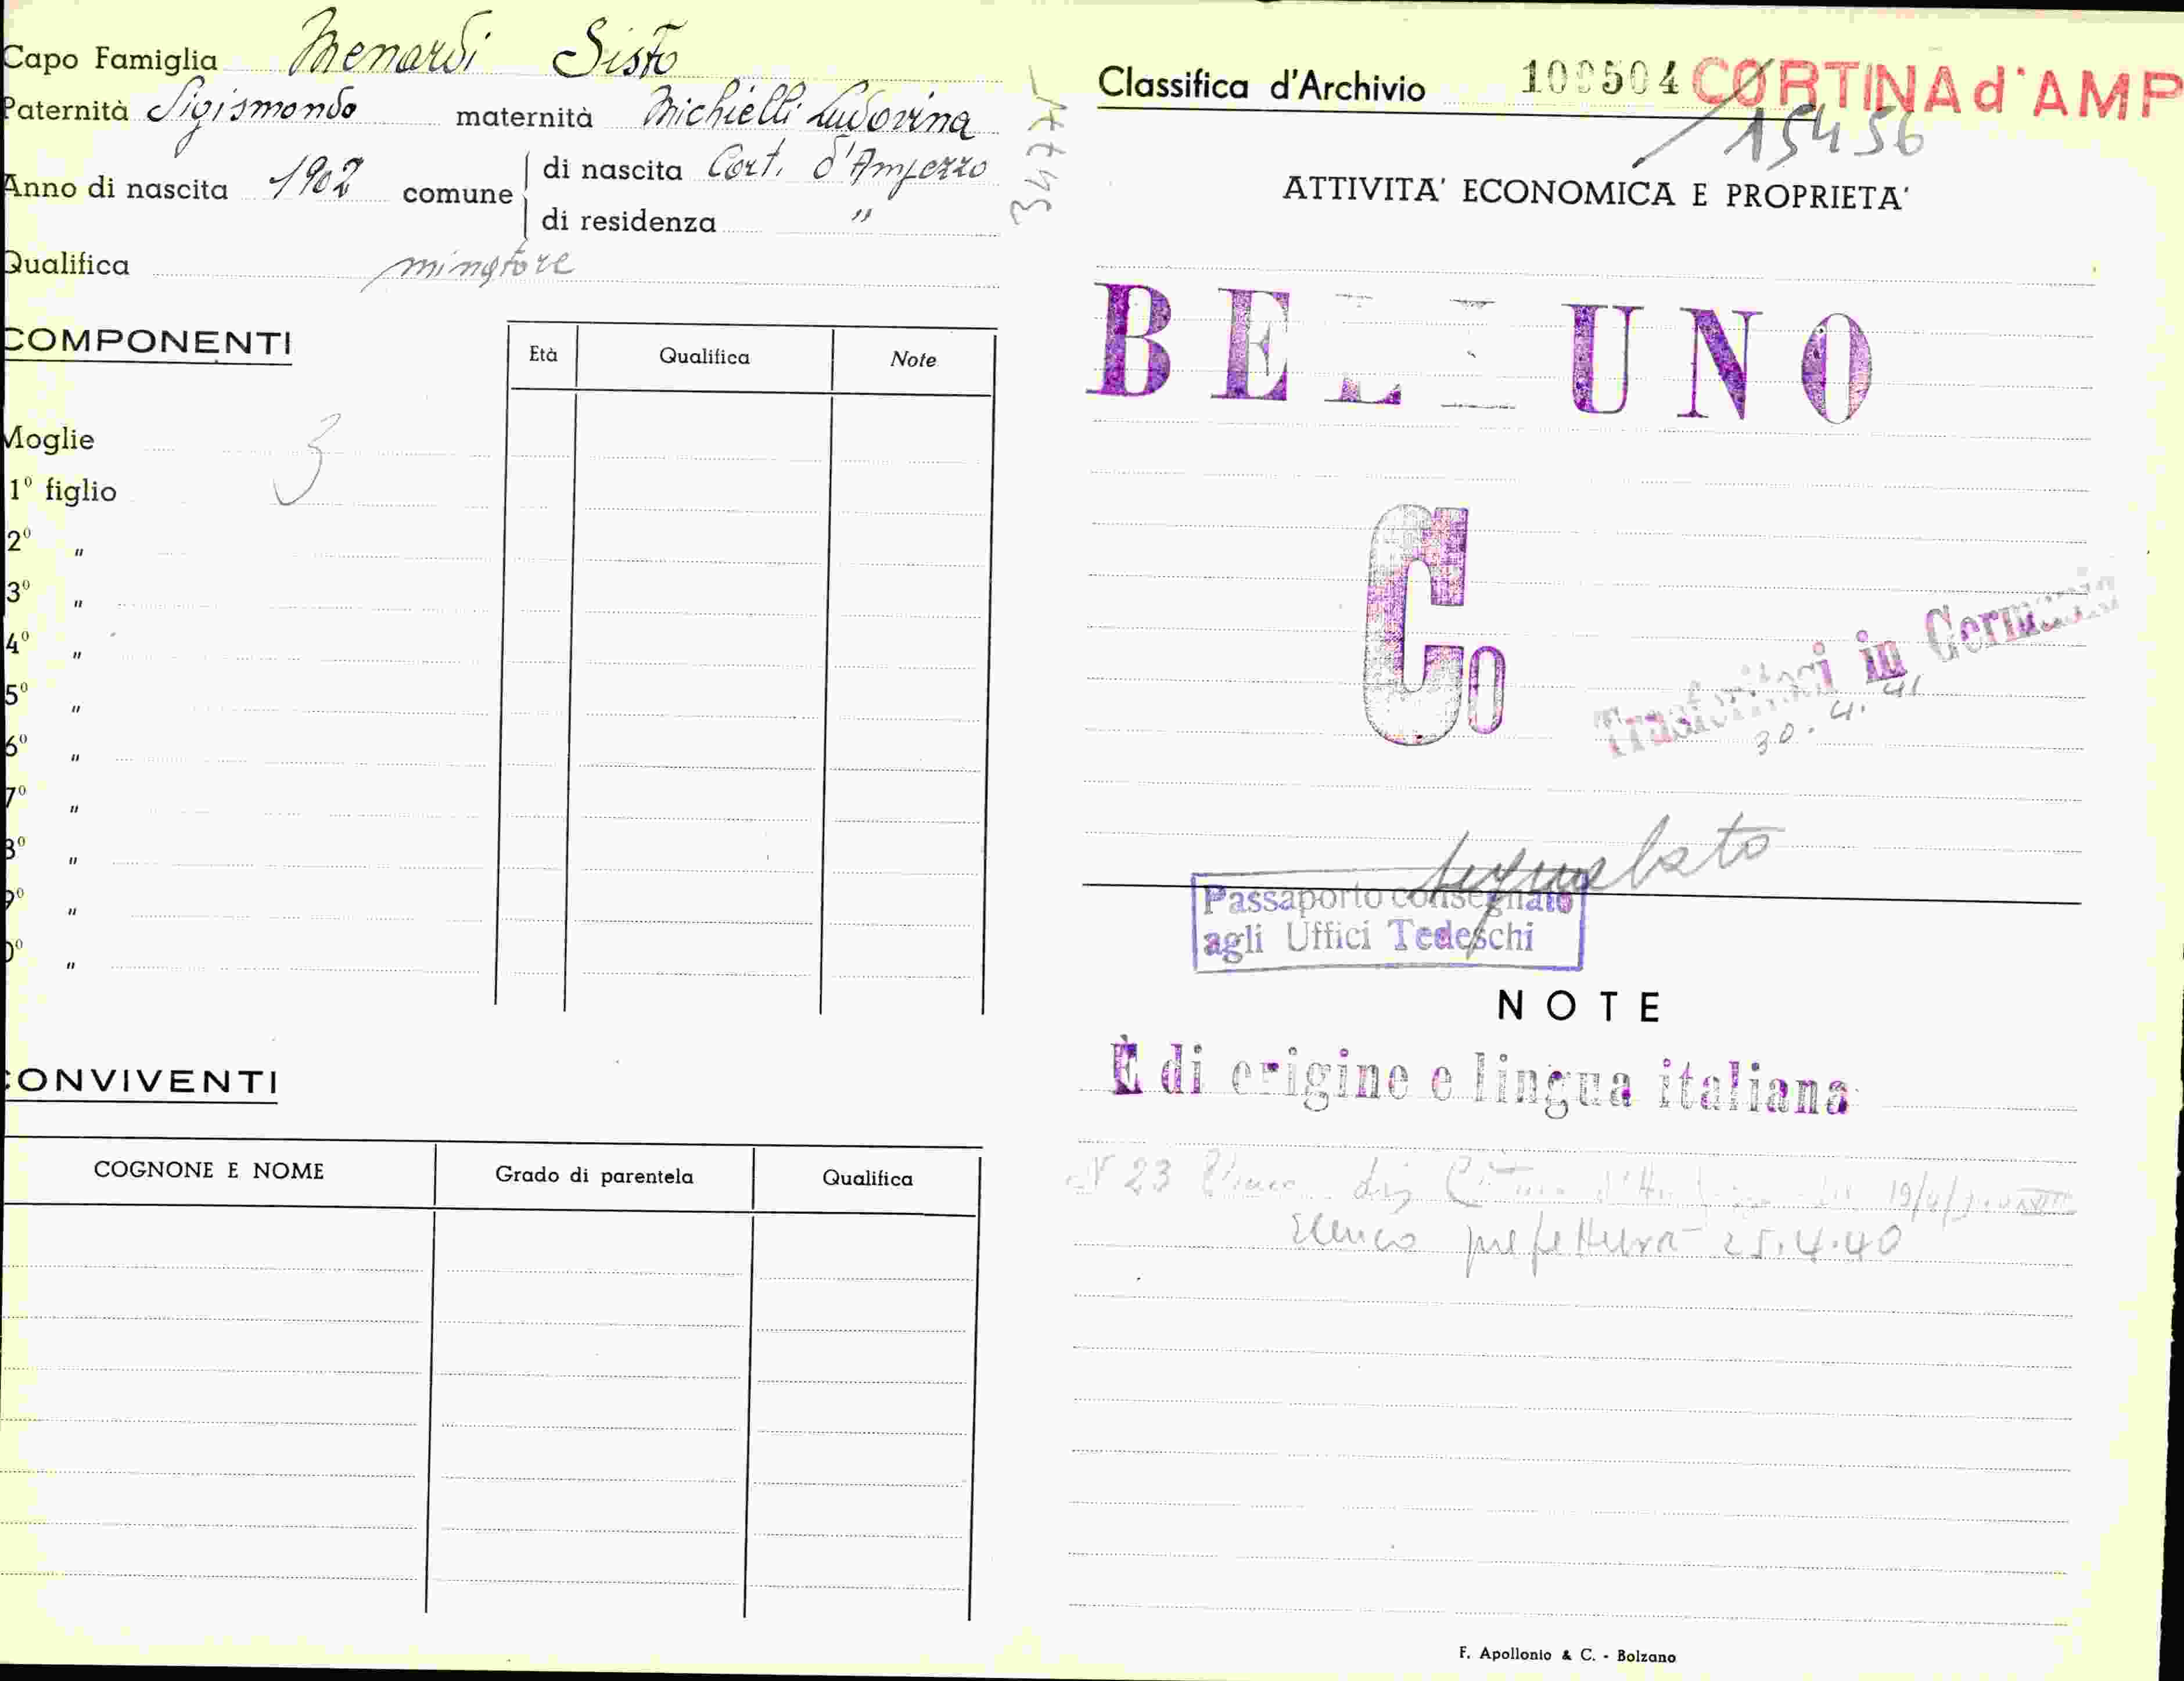 Capo Famiglia Menardi Sisto
Paternità Sigismondo maternità Michielli Ludovina
Anno di nascita 1902 comune di nascita Cort. d'Ampezzo
di residenza "
Qualifica minatore
COMPONENTI
Età Qualifica Note
Moglie 3
1º figlio
2º "
3º "
4º "
5º "
6º "
7º "
8º "
9º "
0º "
CONVIVENTI
COGNONE E NOME Grado di parentela Qualifica
34771
Classifica d'Archivio 109504 CORTINA d'AMP
15456
ATTIVITA' ECONOMICA E PROPRIETA'
BELLUNO
Co
Trasferitosi in Germania
30.4.41
Passaporto consegnato
agli Uffici Tedeschi
NOTE
È di origine e lingua italiana
N 23
Elenco prefettura 25.4.40
F. Apollonio & C. - Bolzano